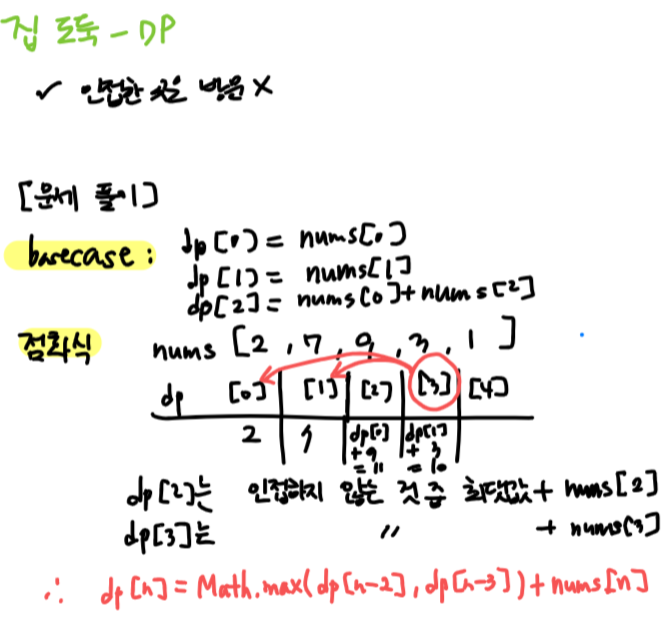 집 도둑 - DP
✓ 인접한 곳은 방문 X
[문제 풀이]
basecase : dp[0] = nums[0]
dp[1] = nums[1]
dp[2] = nums[0] + nums[2]
점화식 nums [2, 7, 9, 3, 1]
dp [0] [1] [2] [3] [4]
2 7 dp[0] + 9 = 11 dp[1] + 3 = 10
dp[2]는 인접하지 않은 것 중 최댓값 + nums[2]
dp[3]는 〃 + nums[3]
∴ dp[n] = Math.max(dp[n-2], dp[n-3]) + nums[n]